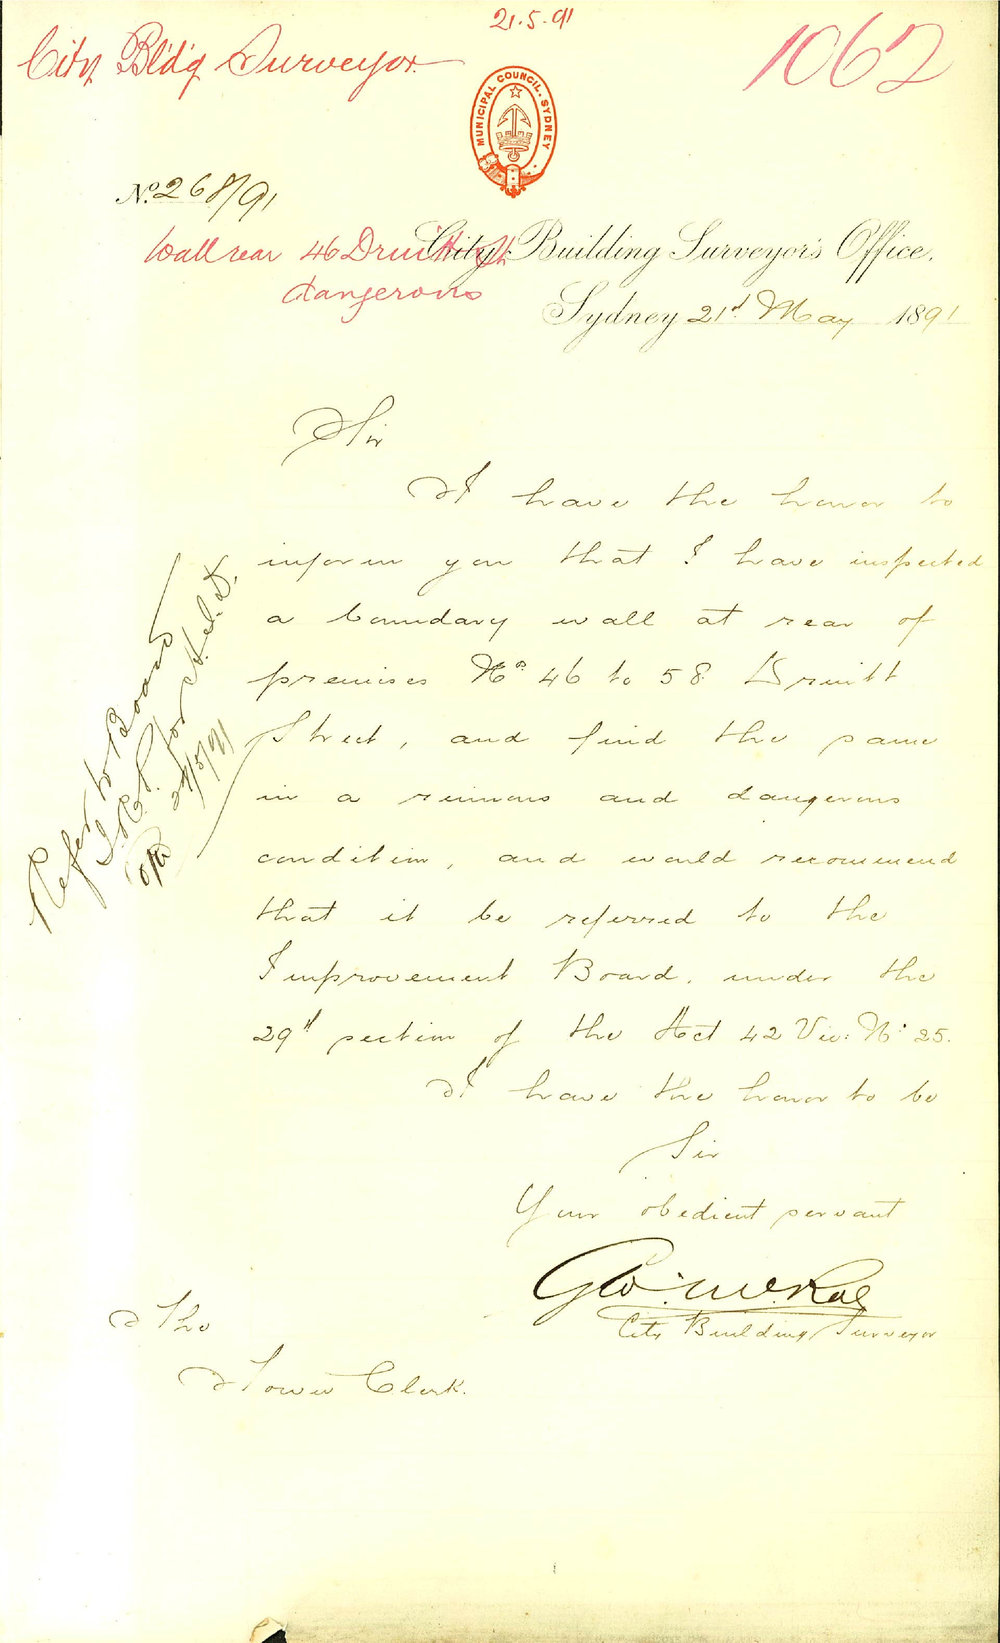 21.5.91
City Bldg Surveyor
1062
MUNICIPAL COUNCIL. SYDNEY
No. 268/91
Wall rear 46 Druitt St
dangerous
City Building Surveyor's Office,
Sydney 21st May 1891
Sir
I have the honor to
inform you that I have inspected
a boundary wall at rear of
premises Nos 46 to 58 Druitt
Street, and find the same
in a ruinous and dangerous
condition, and would recommend
that it be referred to the
Improvement Board, under the
29th section of the Act 42 Vic: No 25.
I have the honor to be
Sir
Your obedient servant
Geo: McRae
City Building Surveyor
The
Town Clerk.
Refer to Board
for H.C.D.
21/5/91